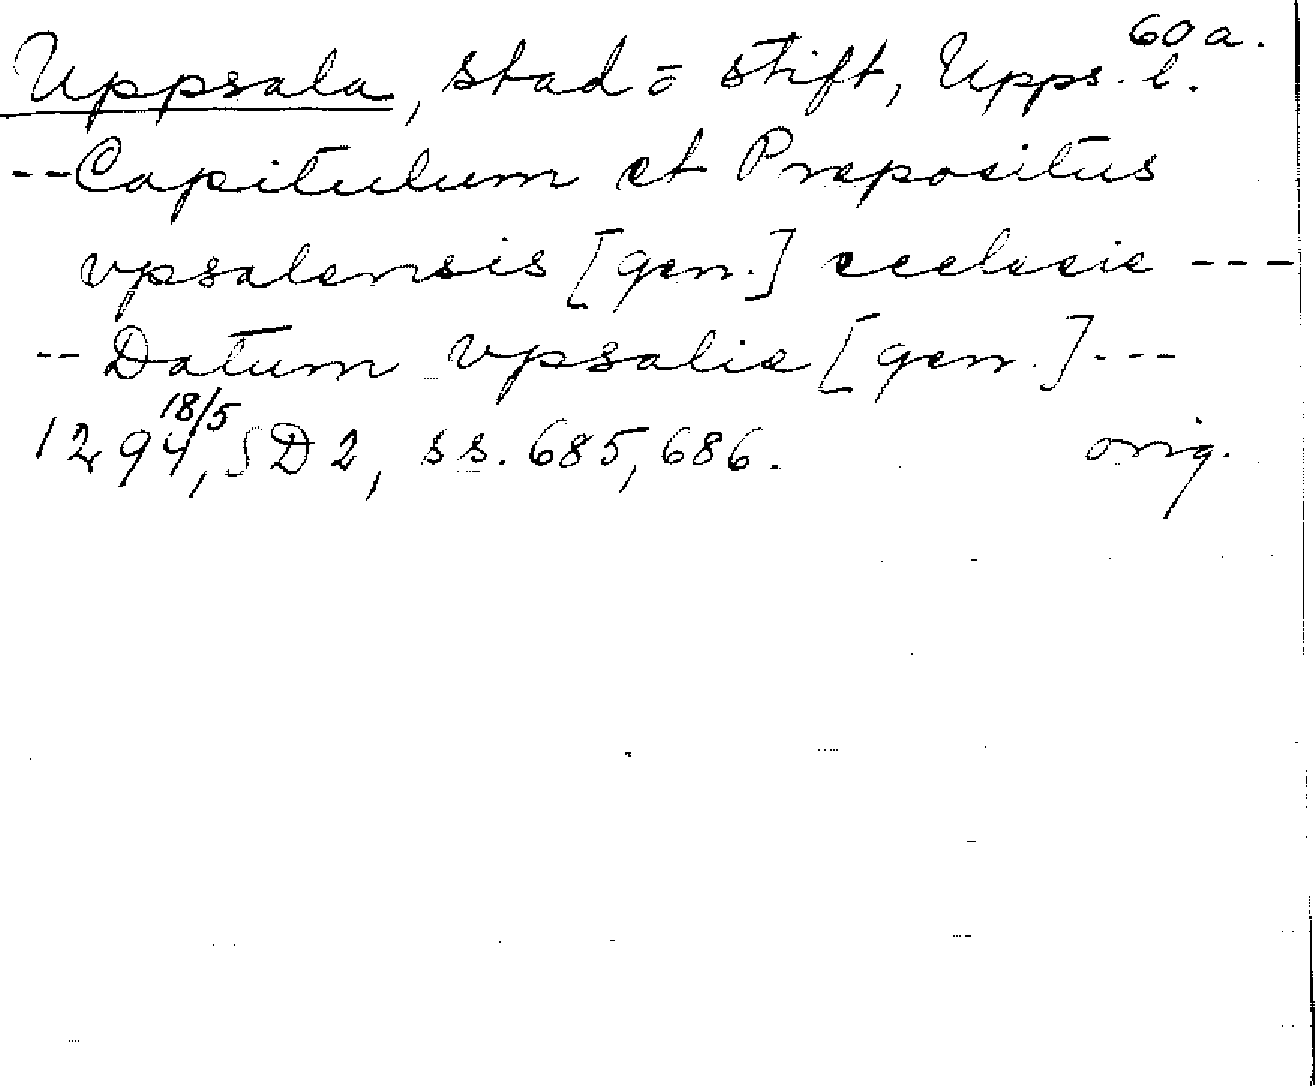 60a.
Uppsala, stad o stift, Upps. l.
--Capitulum et Prepositus
vpsalensis [gen.] ecclesie ---
-- Datum vpsalie [gen.] ---
1294 18/5, SD 2, ss. 685, 686. orig.